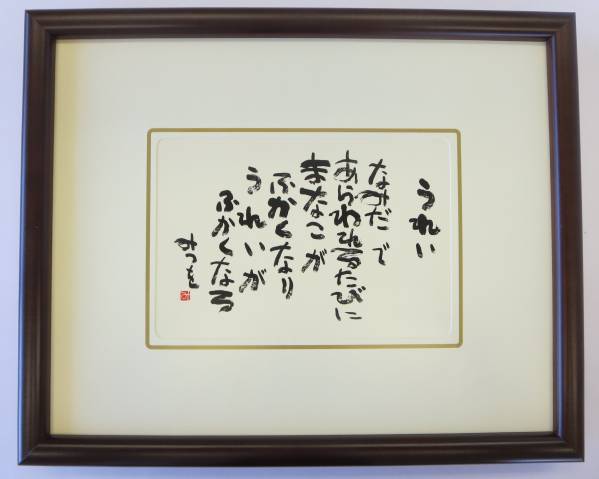 うれい
なみだで
あらわれるたびに
まなこが
ふかくなり
うれいが
ふかくなる
みつを